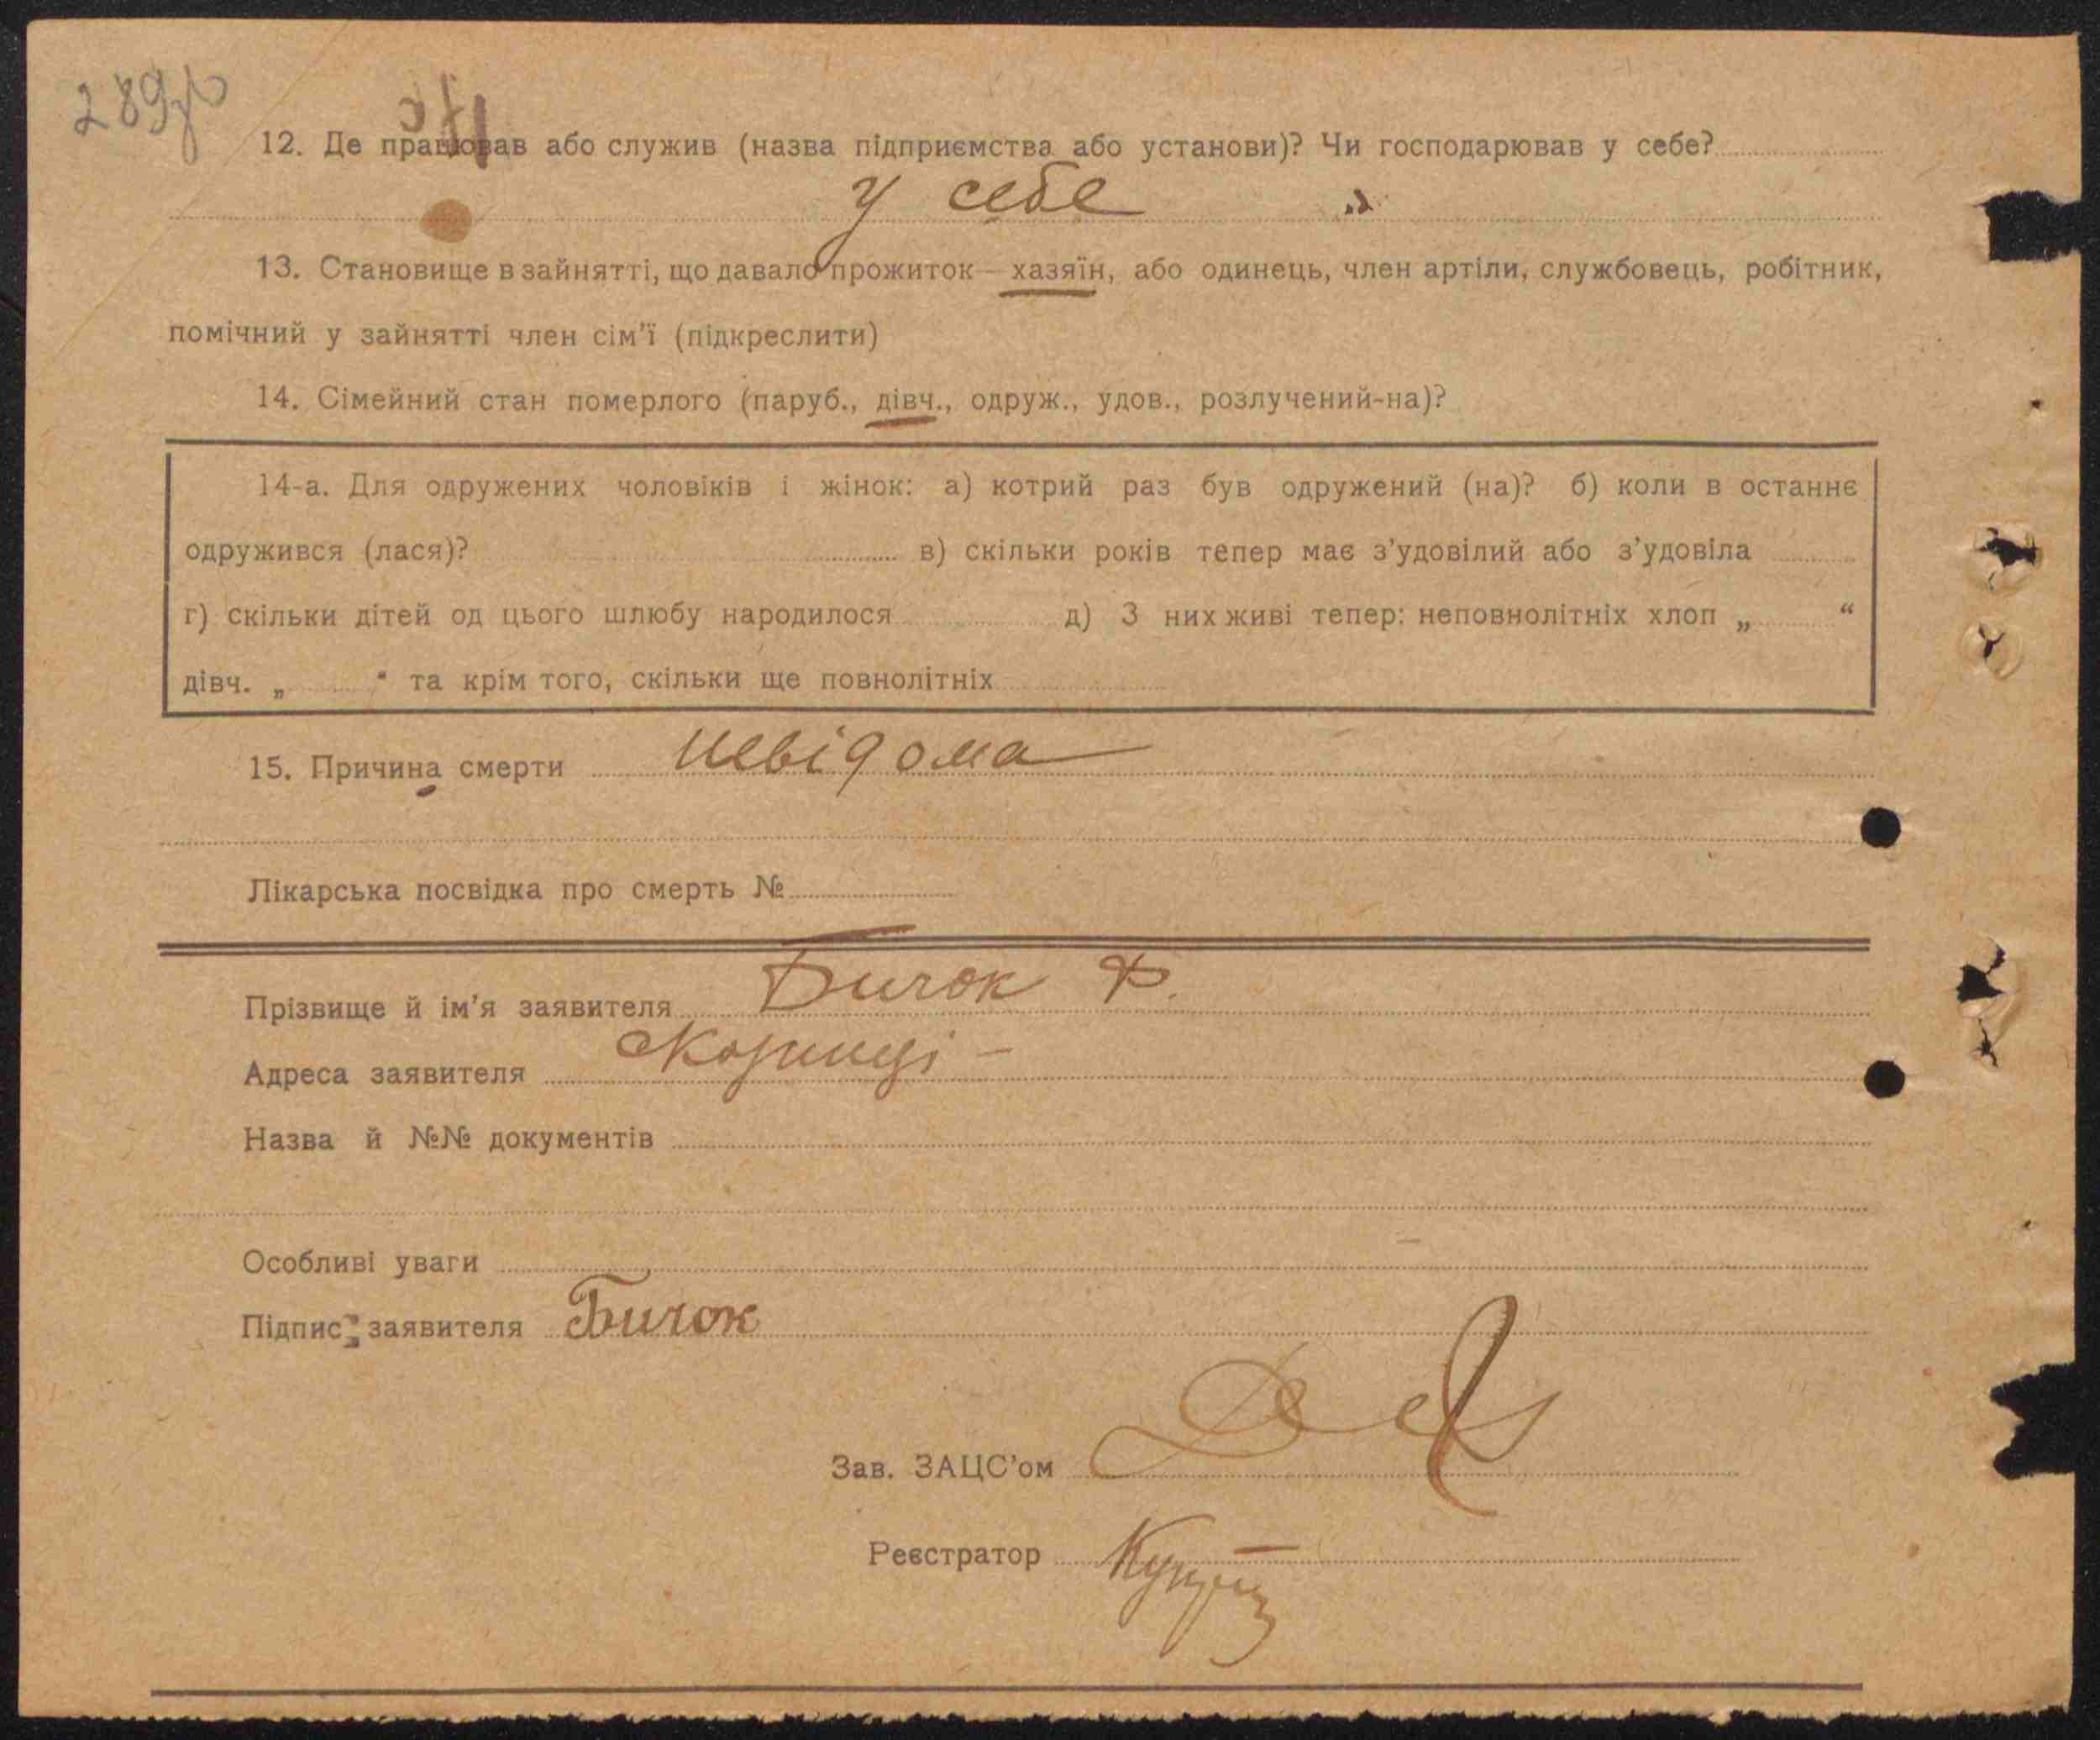 289
12. Де працював або служив (назва підприємства або установи)? Чи господарював у себе?
у себе
13. Становище в зайнятті, що давало прожиток — хазяїн, або одинець, член артіли, службовець, робітник,
помічний у зайнятті член сім'ї (підкреслити)
14. Сімейний стан померлого (паруб., дівч., одруж., удов., розлучений-на)?
14-а. Для одружених чоловіків і жінок: а) котрий раз був одружений (на)? б) коли в останнє
одружився (лася)? в) скільки років тепер має з'удовілий або з'удовіла
г) скільки дітей од цього шлюбу народилося д) З них живі тепер: неповнолітніх хлоп „ “
дівч. „ “ та крім того, скільки ще повнолітніх
15. Причина смерти невідома
Лікарська посвідка про смерть №
Прізвище й ім'я заявителя Бичок Ф.
Адреса заявителя
Назва й №№ документів
Особливі уваги
Підпис заявителя Бичок
Зав. ЗАЦС'ом
Реєстратор